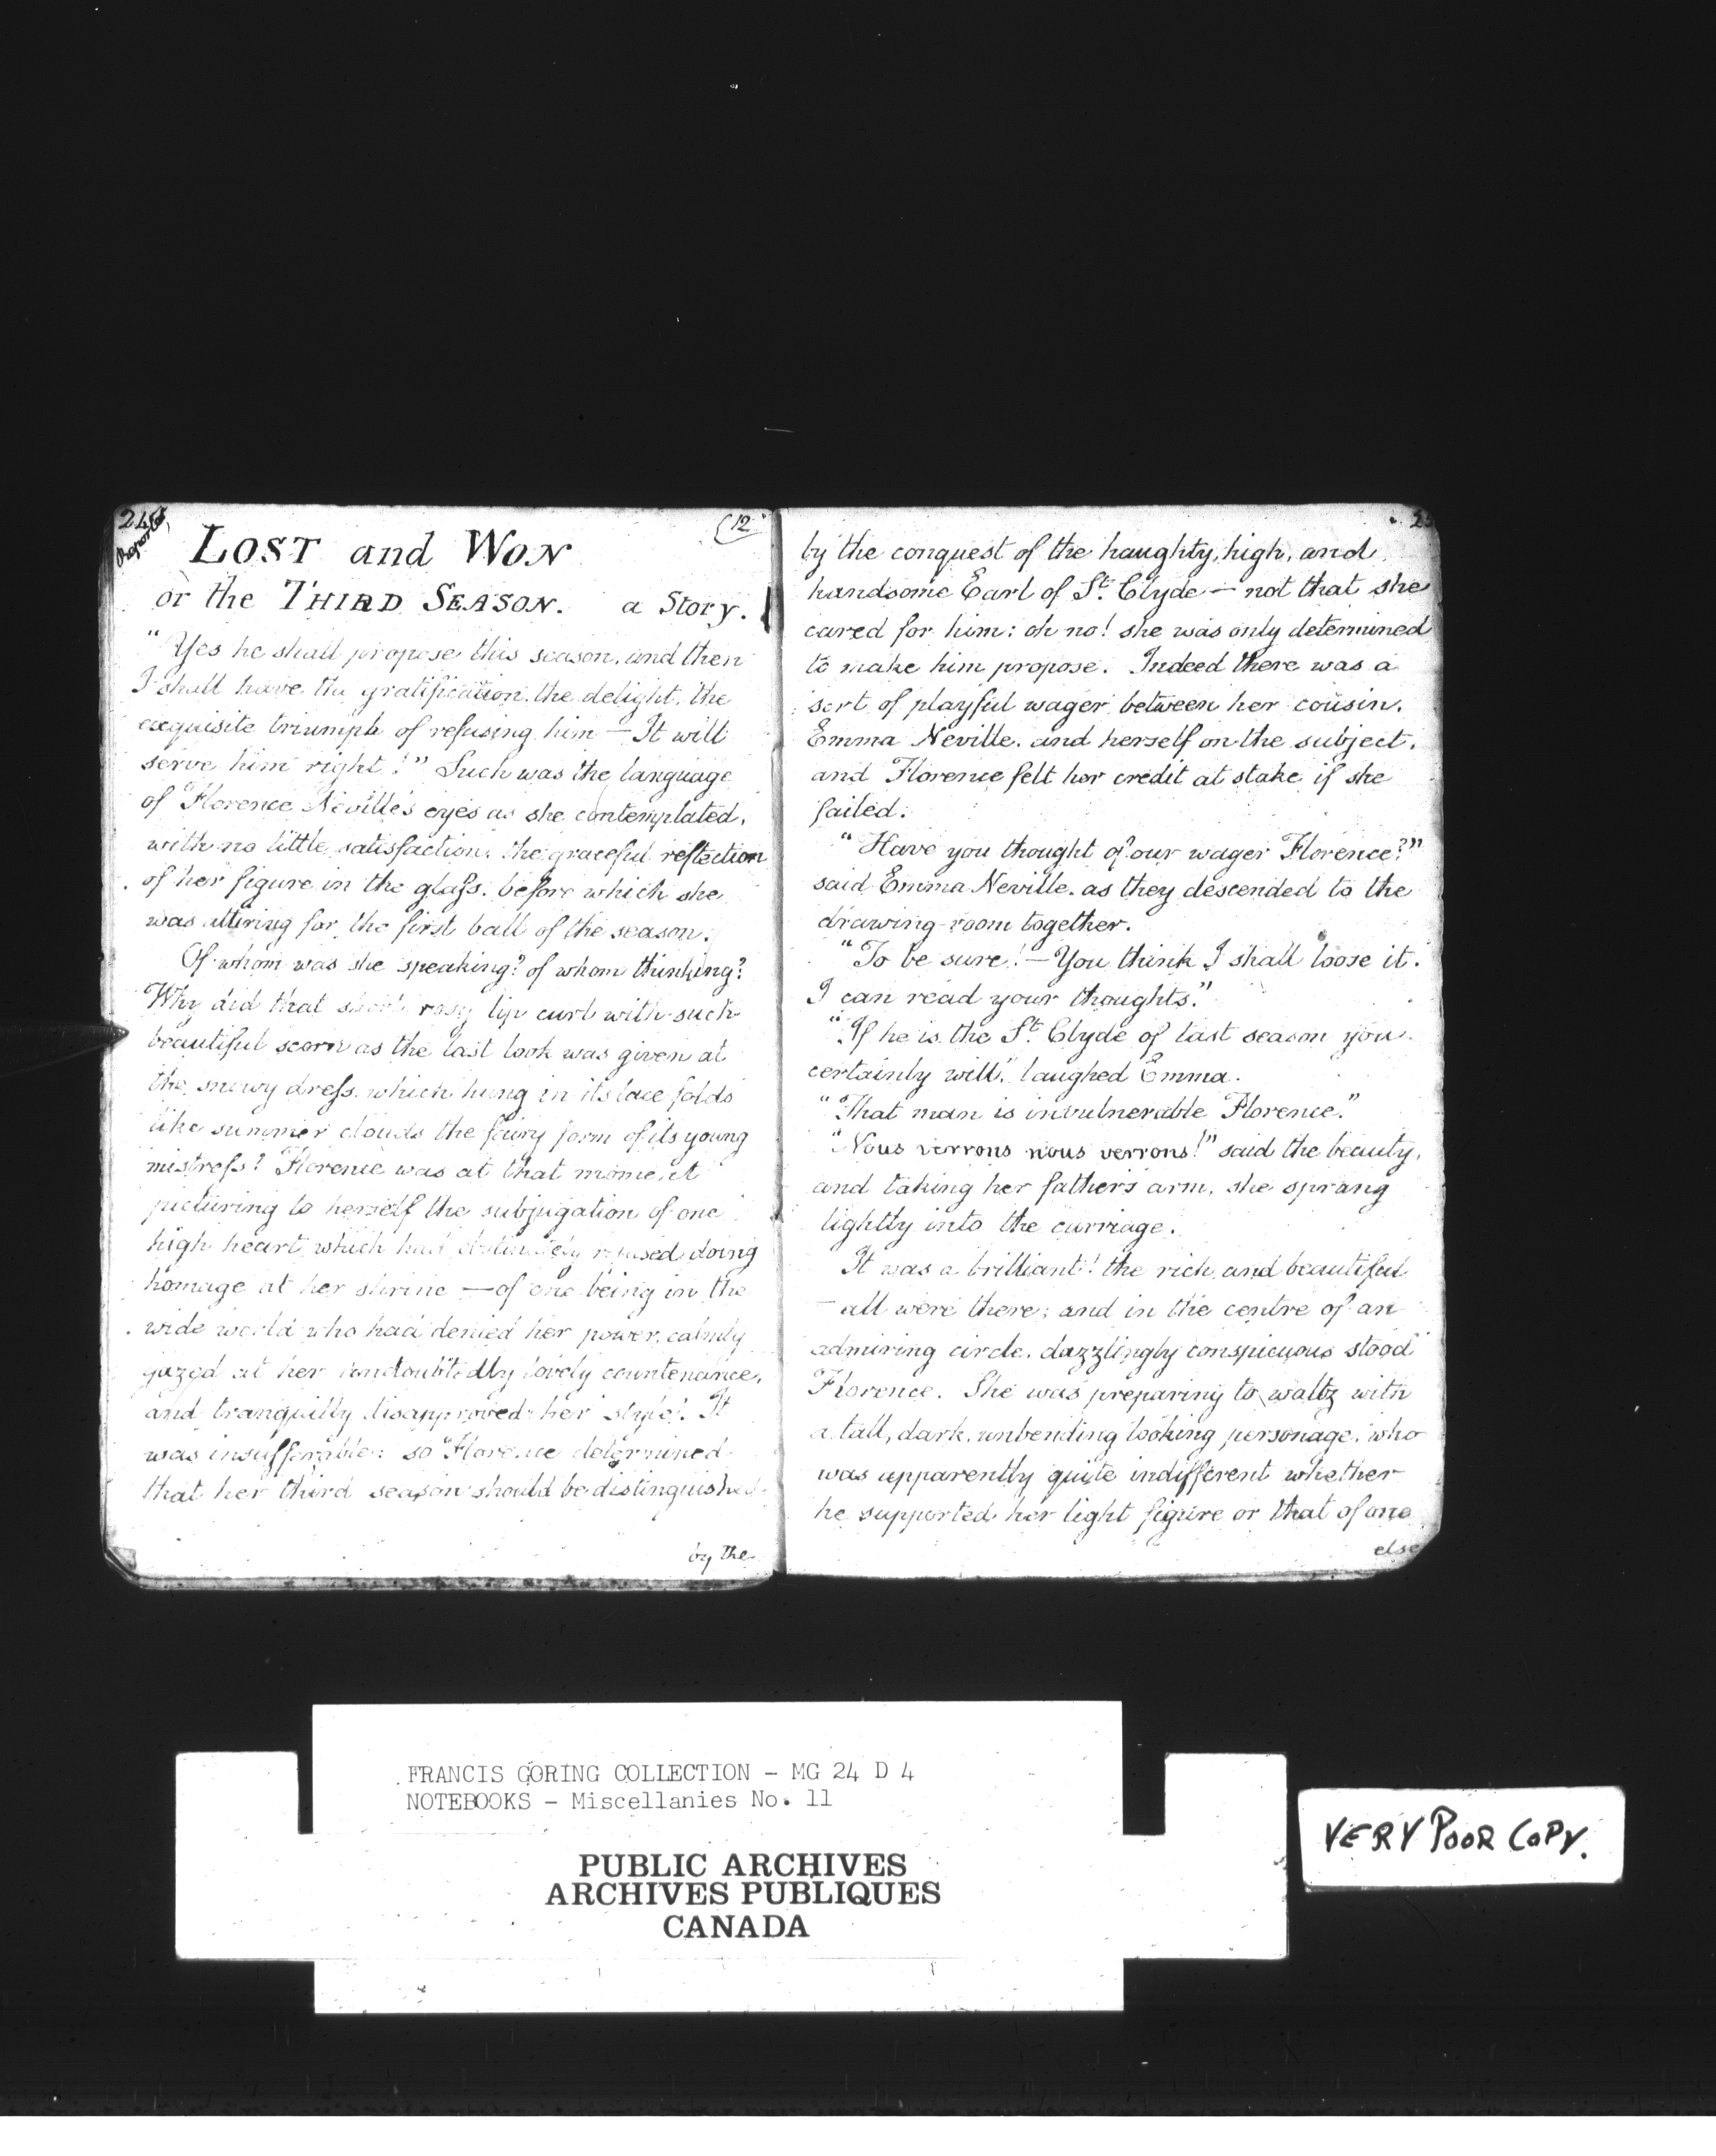 24
(12
LOST and WON
or the THIRD SEASON. a Story.
"Yes he shall propose this season, and then
I shall have the gratification, the delight, the
exquisite triumph of refusing him — It will
serve him right!" Such was the language
of Florence Neville's eyes as she contemplated,
with no little satisfaction, the graceful reflection
of her figure in the glass, before which she
was attiring for the first ball of the season.
Of whom was she speaking? of whom thinking?
Why did that short rosy lip curl with such
beautiful scorn as the last look was given at
the snowy dress, which hung in its lace folds
like summer clouds the fairy form of its young
mistress? Florence was at that moment
picturing to herself the subjugation of one
high heart which had refused doing
homage at her shrine — of one being in the
wide world who had denied her power, calmly
gazed at her undoubtedly lovely countenance,
and tranquilly disapproved her style! It
was insufferable: so Florence determined
that her third season should be distinguished
by the
by the conquest of the haughty, high, and
handsome Earl of St. Clyde — not that she
cared for him: oh no! she was only determined
to make him propose. Indeed there was a
sort of playful wager between her cousin,
Emma Neville, and herself on the subject,
and Florence felt her credit at stake if she
failed.
"Have you thought of our wager Florence?"
said Emma Neville, as they descended to the
drawing-room together.
"To be sure! — You think I shall loose it.
I can read your thoughts."
"If he is the St. Clyde of last season you
certainly will", laughed Emma.
"That man is invulnerable Florence."
"Nous verrons nous verrons!" said the beauty,
and taking her father's arm, she sprang
lightly into the carriage.
It was a brilliant! the rich and beautiful
— all were there; and in the centre of an
admiring circle, dazzlingly conspicuous stood
Florence. She was preparing to waltz with
a tall, dark, unbending looking personage, who
was apparently quite indifferent whether
he supported her light figure or that of one
else
FRANCIS GORING COLLECTION - MG 24 D 4
NOTEBOOKS - Miscellanies No. 11
PUBLIC ARCHIVES
ARCHIVES PUBLIQUES
CANADA
VERY POOR COPY.